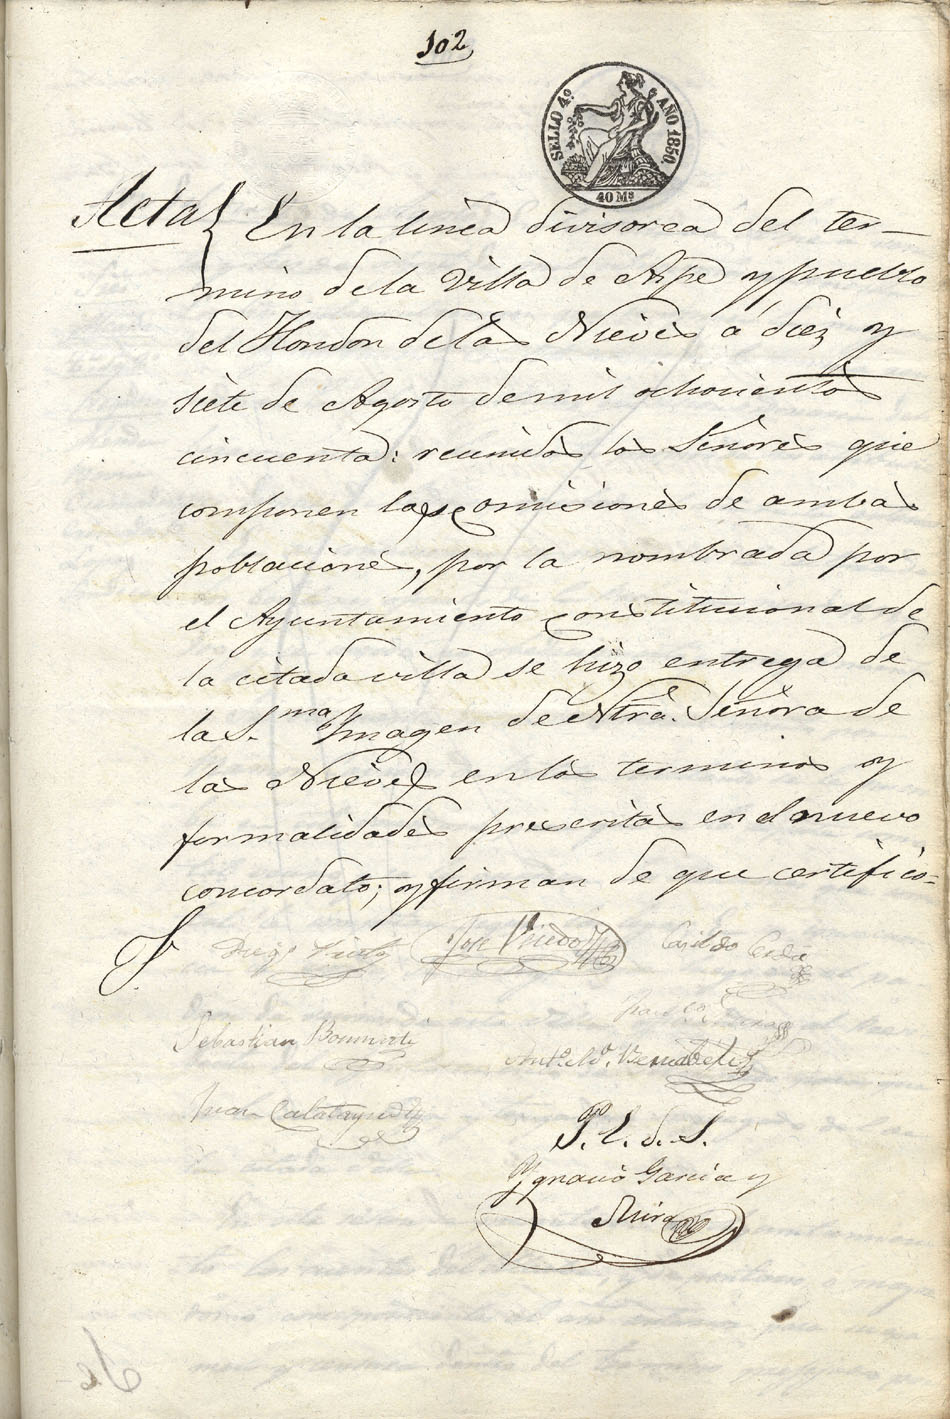 102
SELLO 4º AÑO 1850.
40 Ms
Acta { En la linea divisorea del ter-
mino de la Villa de Aspe y pueblo
del Hondon de las Nieves a diez y
siete de Agosto de mil ochocientos
cincuenta: reunidos los Señores que
componen las comisiones de ambas
poblaciones, por la nombrada por
el Ayuntamiento constitucional de
la citada villa se hizo entrega de
la S.ma Ymagen de Ntra. Señora de
las Nieves en los terminos y
formalidades prescritas en el nuevo
concordato; y firman de que certifico=
Diego José Casildo Cerdá
Sebastian
Juan Calatayud
P. L. d. S.
Ygnacio Garcia y
Mira